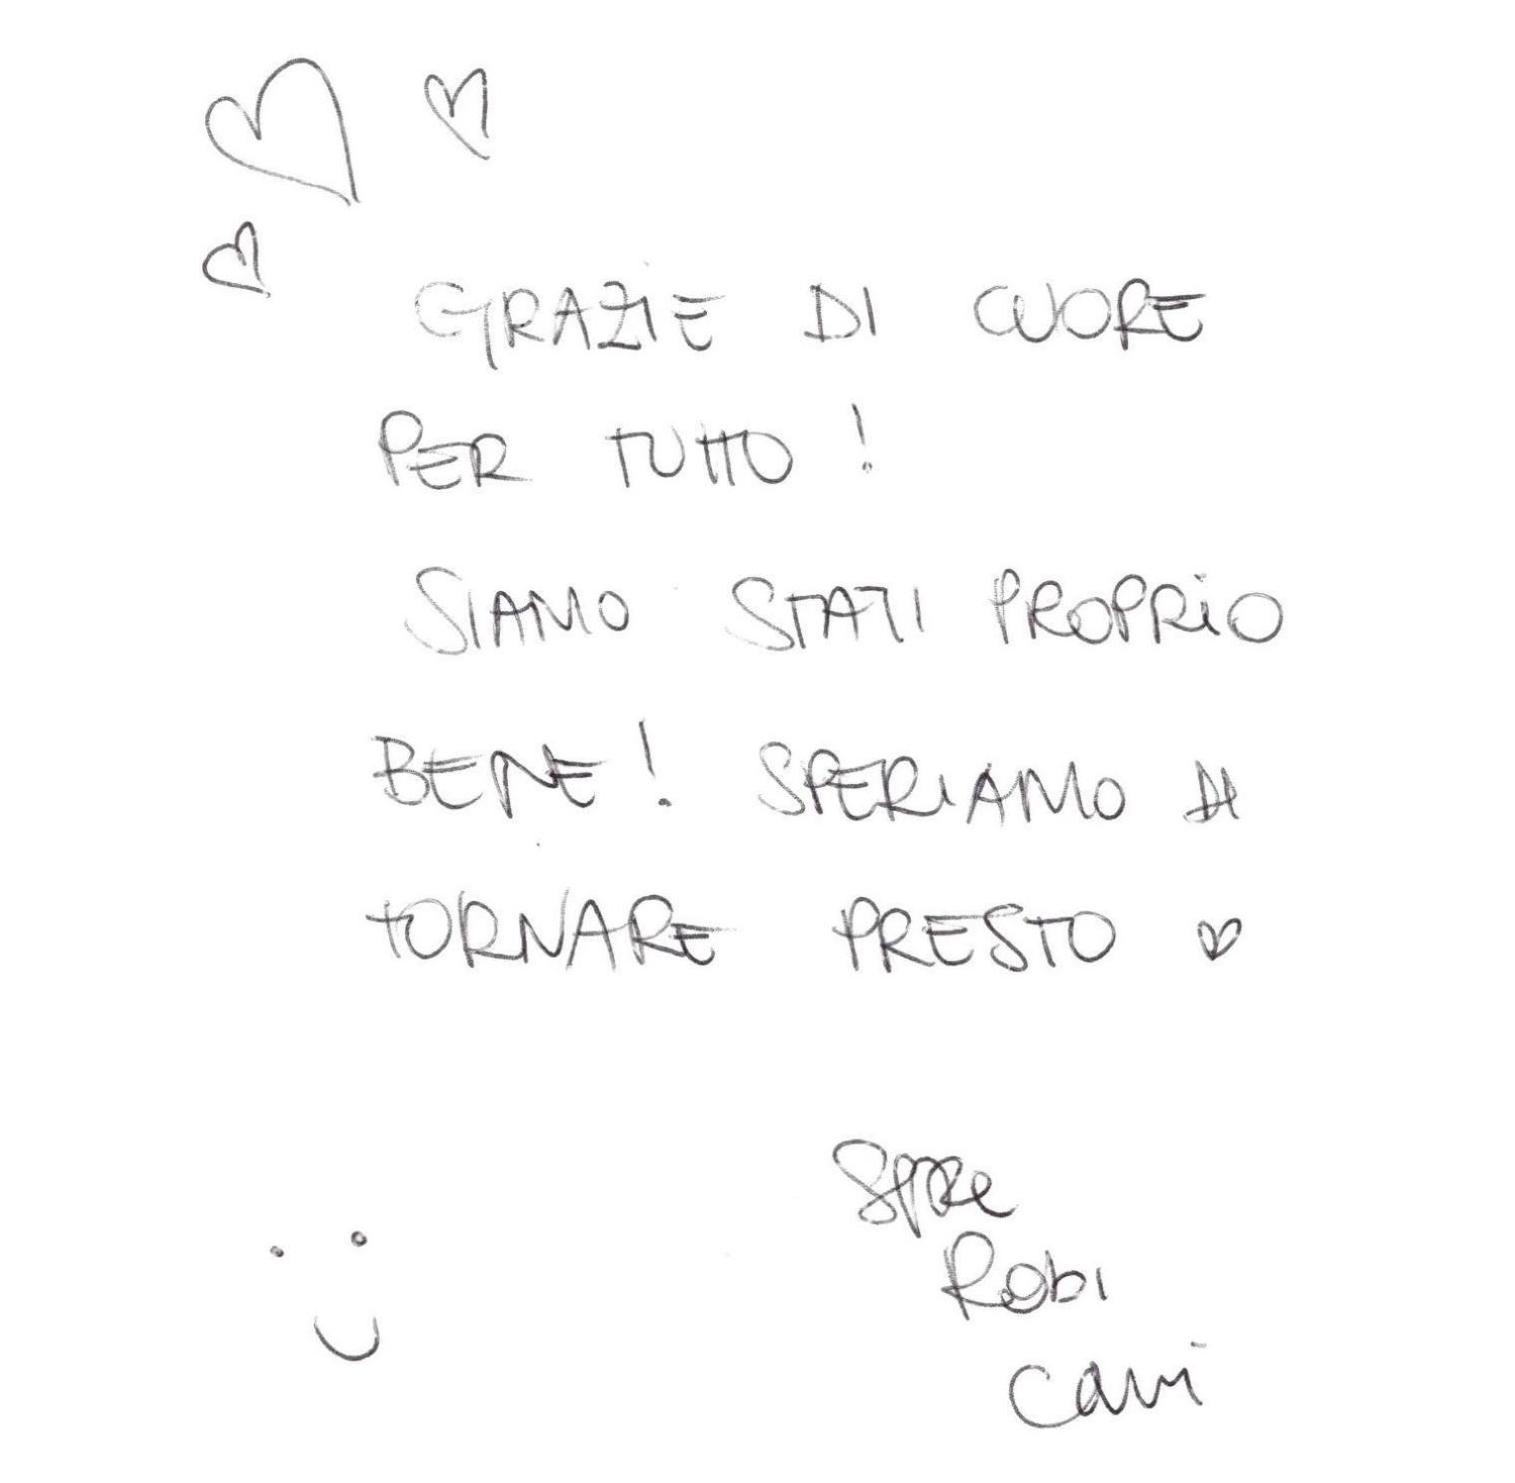 GRAZIE DI CUORE
PER TUTTO!
SIAMO STATI PROPRIO
BENE! SPERIAMO DI
TORNARE PRESTO ♡
Robi